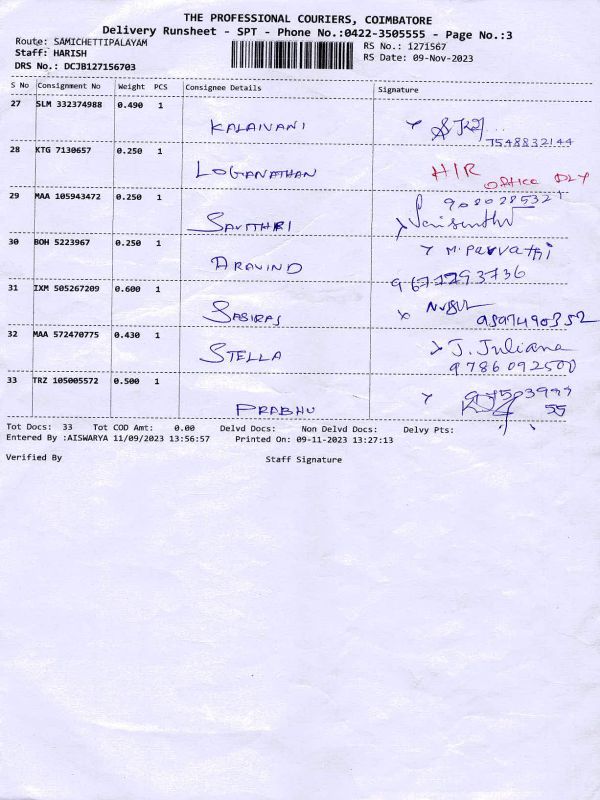 THE PROFESSIONAL COURIERS, COIMBATORE
Delivery Runsheet - SPT - Phone No.:0422-3505555 - Page No.:3
Route: SAMICHETTIPALAYAM
Staff: HARISH
DRS No.: DCJB127156703
RS No.: 1271567
RS Date: 09-Nov-2023
S No Consignment No Weight PCS Consignee Details Signature
27 SLM 332374988 0.490 1
KALAIVANI
7548832144
28 KTG 7130657 0.250 1
LOGANATHAN H/R
OFFICE DLY
29 MAA 105943472 0.250 1 9080285321
SAVITHRI
30 BOH 5223967 0.250 1 M. Parvathi
ARAVIND 9677293736
31 IXM 505267209 0.600 1
SABIRAS 9597490352
32 MAA 572470775 0.430 1 J. Juliana
STELLA 9786092500
33 TRZ 105005572 0.500 1
PRABHU 55
Tot Docs: 33 Tot COD Amt: 0.00 Delvd Docs: Non Delvd Docs: Delvy Pts:
Entered By :AISWARYA 11/09/2023 13:56:57 Printed On: 09-11-2023 13:27:13
Verified By Staff Signature